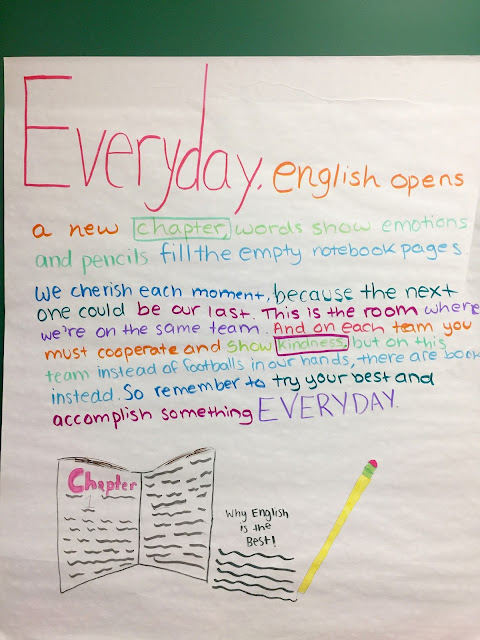 Everyday. english opens
a new chapter, words show emotions
and pencils fill the empty notebook pages
we cherish each moment, because the next
one could be our last. This is the room where
we're on the same team. And on each team you
must cooperate and show kindness, but on this
team instead of footballs in our hands, there are book
instead. So remember to try your best and
accomplish something EVERYDAY.
Chapter
1
Why English
is the
Best!